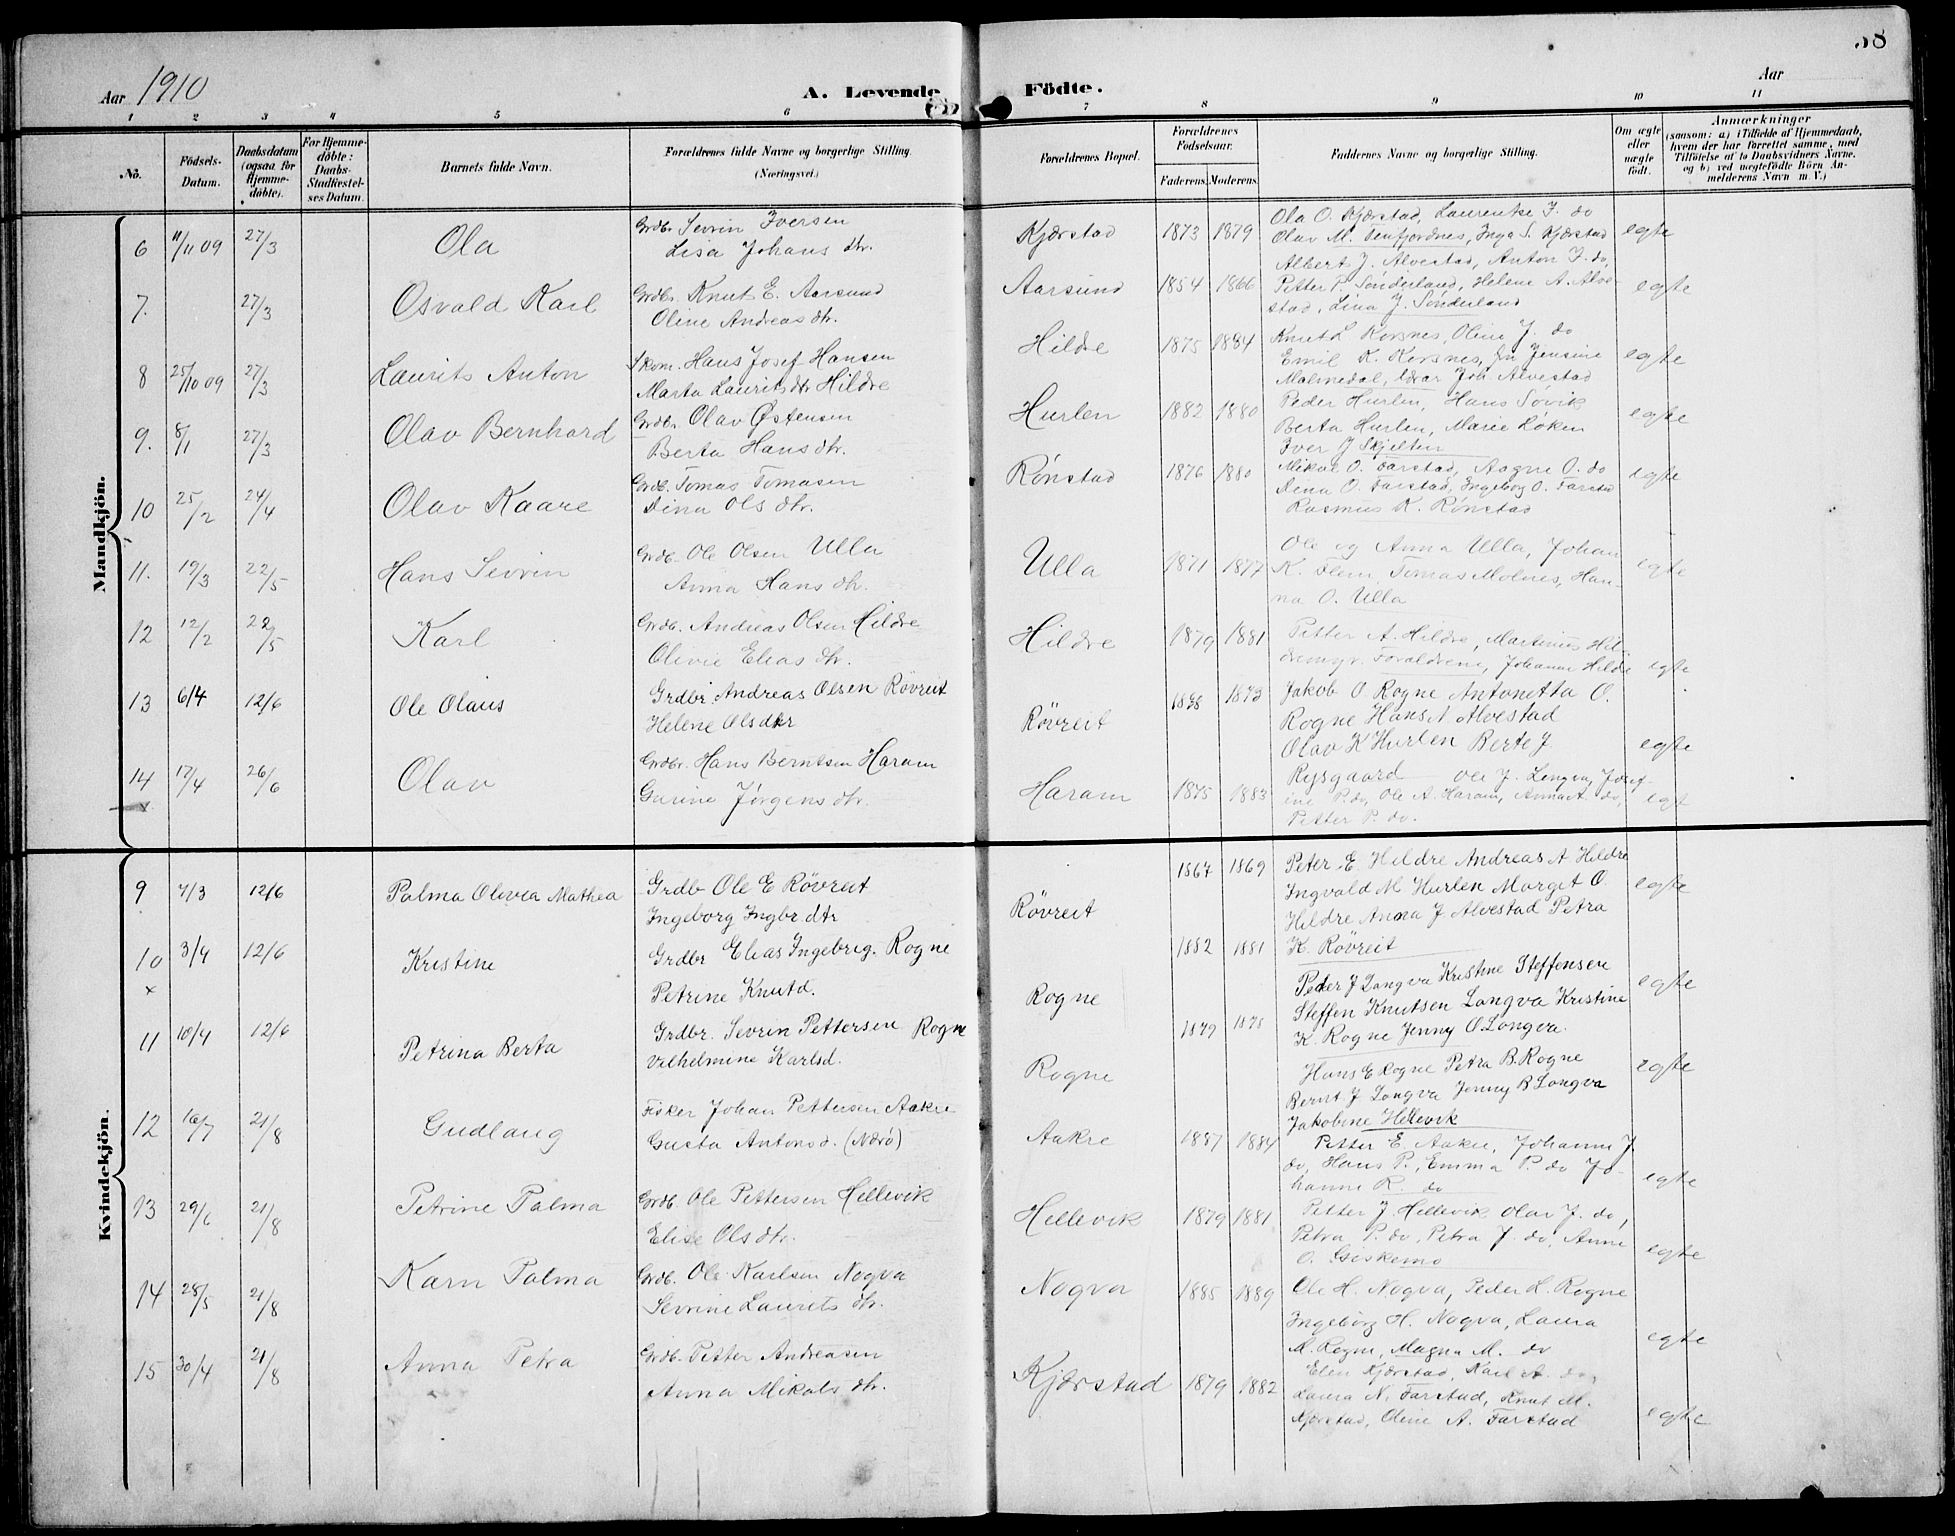 38
Aar 1910
A. Levende
Födte.
Aar
1 2 3 4 5 6 7 8 9 10 11
No.
Födsels-Datum.
Daabsdatum (ogsaa for Hjemme-döbte).
For Hjemme-döbte: Daabs-Stadfæstel-ses Datum.
Barnets fulde Navn.
Forældrenes fulde Navne og borgerlige Stilling. (Næringsvei.)
Forældrenes Bopæl.
Forældrenes Födselsaar.
Faderens. Moderens.
Faddernes Navne og borgerlige Stilling.
Om ægte eller uægte födt.
Anmærkninger
(saasom: a) i Tilfælde af Hjemmedaab, hvem der har forrettet samme, med Tilföielse af to Daabsvidners Navne. og b) ved uægtefödte Börn An-melderens Navn m. V.)
Mandkjön.
6 11/11 09 27/3 Ola Grdbr. Sevrin Iversen
Lisa Johans dtr.
Kjærstad 1873 1879 Ola O. Kjærstad, Laurentse I. do
Olav M. Tenfjordnes, Inga S. Kjærstad egte
7. 27/3 Osvald Karl Grdbr. Knut E. Aarsund
Oline Andreas dtr.
Aarsund 1854 1866 Albert J. Alvestad, Anton J. do,
Petter P. Sønderland, Helene A. Alve-
stad, Lina J. Sønderland egte
8 25/10 09 27/3 Laurits Anton Skom. Hans Josef Hansen
Marta Laurits dtr Hildre
Hildre 1875 1884 Knut L Korsnes, Oline J. do
Emil K. Korsnes, Jensine
Malmedal, Johs. Alvestad egte
9. 8/1 27/3 Olav Bernhard Grdbr. Olav Østensen
Berta Hans dtr.
Hurlen 1882 1880 Peder Hurlen, Hans Søvik
Berta Hurlen, Marie Løken
Iver J Skjelten egte
10 25/2 24/4 Olav Kaare Grdb. Tomas Tomasen
Dina Ols dtr.
Rønstad 1876 1880 Mikal O. Farstad, Aagne O. do
Dina O. Farstad, Ingeborg O. Farstad
Rasmus K. Rønstad egte
11. 19/3 22/5 Hans Sevrin Grdb. Ole Olsen Ulla
Anna Hans dtr.
Ulla 1871 1877 Ole og Anna Ulla, Johan
K. Flem, Tomas Molnes, Han-
na O. Ulla egte
12 12/2 22/5 Karl Grdb. Andreas Olsen Hildre
Olivie Elias dtr.
Hildre 1879 1881 Petter A. Hildre, Martinus Hil-
dremyr. Forældrene, Johanne Hildre egte
13 6/4 12/6 Ole Olaus Grdbr. Andreas Olsen Rövreit
Helene Olsdtr
Rövreit 1873 Jakob O. Rogne Antonetta O.
Rogne Hans A Alvestad
Olav K Hurlen Berte J.
Rysgaard egte
14 17/4 26/6 Olav Grdbr. Hans Berntsen Haram
Gurine Jørgens dtr.
Haram 1875 1883 Ole J. Longva, Josef-
ine P. do, Ole A. Haram, Anna A. do,
Petter P. do. egt
Kvindekjön.
9 7/3 12/6 Palma Olivia Mathea Grdb Ole E Rövreit
Ingeborg Ingbr. dtr
Rövreit 1867 1869 Peter E. Hildre Andreas A Hildre
Ingvald M Hurlen Marget O
Hildre Anna J Alvestad Petra
K. Rövreit egte
10 3/4 12/6 Kristine Grdbr Elias Ingebrig. Rogne
Petrine Knutd.
Rogne 1882 1881 Peder J Longva Kristine Steffensen
Steffen Knutsen Longva Kristine
K. Rogne Jenny O Longva. egte
11 10/4 12/6 Petrina Berta Grdbr. Sevrin Pettersen Rogne
Vilhelmine Karlsd.
Rogne 1879 1878 Hans E Rogne Petra B. Rogne
Bernt J Longva Jenny B Longva
Jakobine Hellevik egte
12 16/7 21/8 Gudlaug Fisker Johan Pettersen Aakre
Gusta Antons d. (Nærø)
Aakre 1887 1884 Petter E. Aakre, Johanne J.
do, Hans P., Emma P. do Jo-
hanne R. do egte
13 29/6 21/8 Petrine Palma Grdb. Ole Pettersen Hellevik
Elise Ols dtr.
Hellevik 1879 1881 Petter J. Hellevik Olav J. do,
Petra P. do, Petra J. do, Anne
O. Giskemo egte
14 28/5 21/8 Karn Palma Grdb. Ole Karlsen Nogva
Sevrine Laurits dtr.
Nogva 1885 1889 Ole H. Nogva, Peder L. Rogne
Ingeborg H. Nogva, Laura
M. Rogne, Magna M. do egte
15 30/4 21/8 Anna Petra Grdb. Petter Andreasen
Anna Mikals dtr.
Kjærstad 1879 1882 Elen Kjærstad, Karl A. do,
Laura N. Farstad, Knut M.
Kjærstad, Oline A. Farstad egte